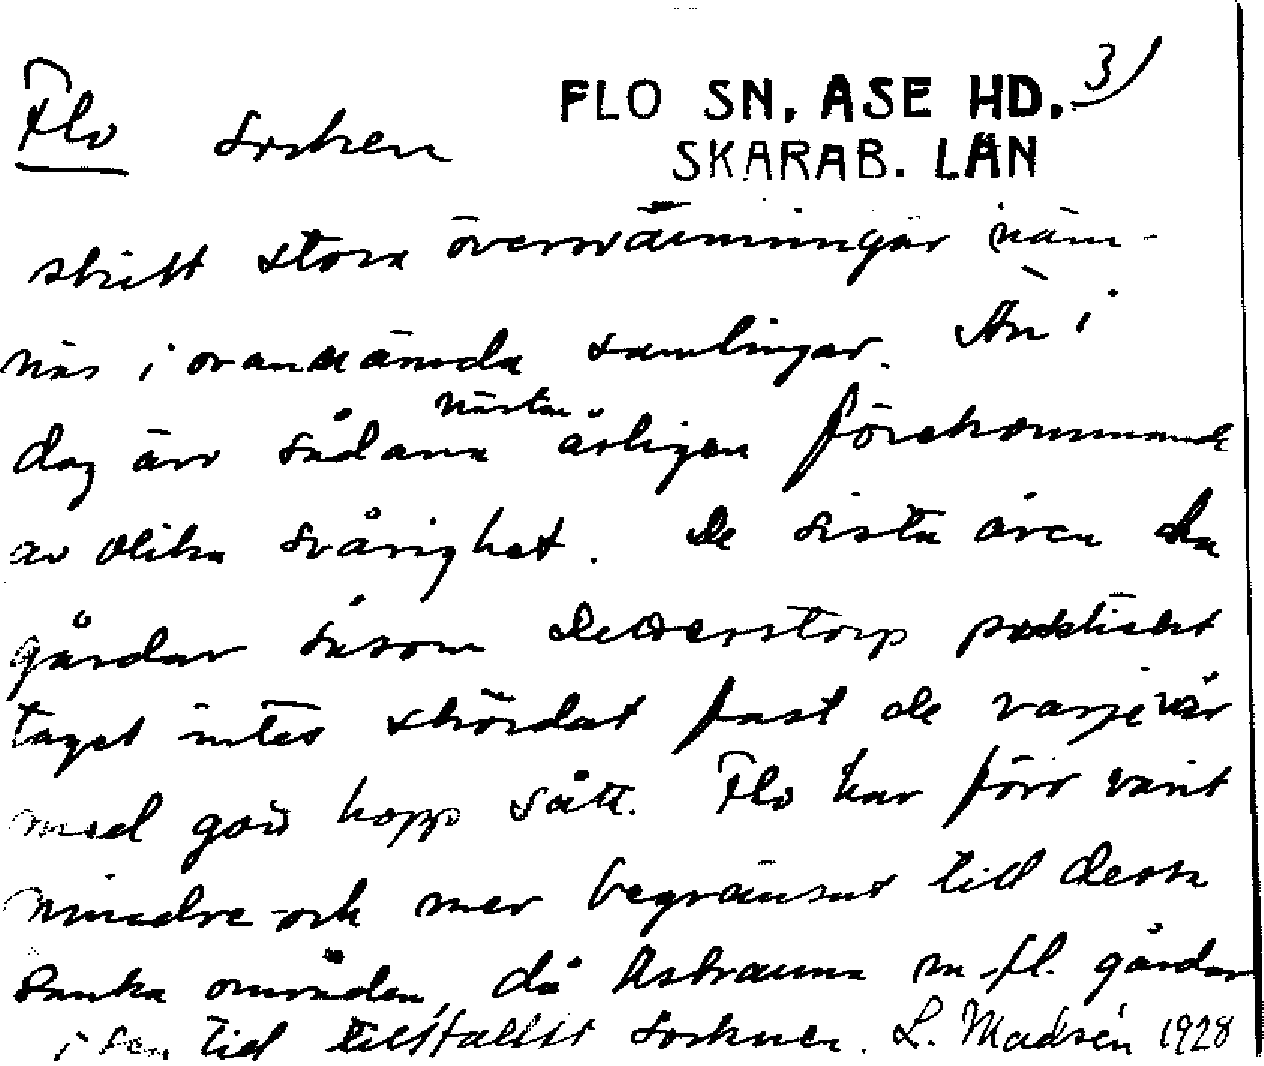 Flo socken
FLO SN. ASE HD. 3)
SKARAB. LÄN
skilt stora översvämningar näm-
nas i ovannämda samlingar. Än i
dag äro sådana nästan årligen förekommande
av olika svårighet. De sista åren ha
gårdar såsom Detterstorp praktiskt
taget intet skördat fast de varje vår
med gott hopp sått. Flo har förr varit
mindre och mer begränsat till dessa
sanka områden, då Åstranna m. fl. gårdar
i sen tid tillfallit socknen. L. Madsén 1928